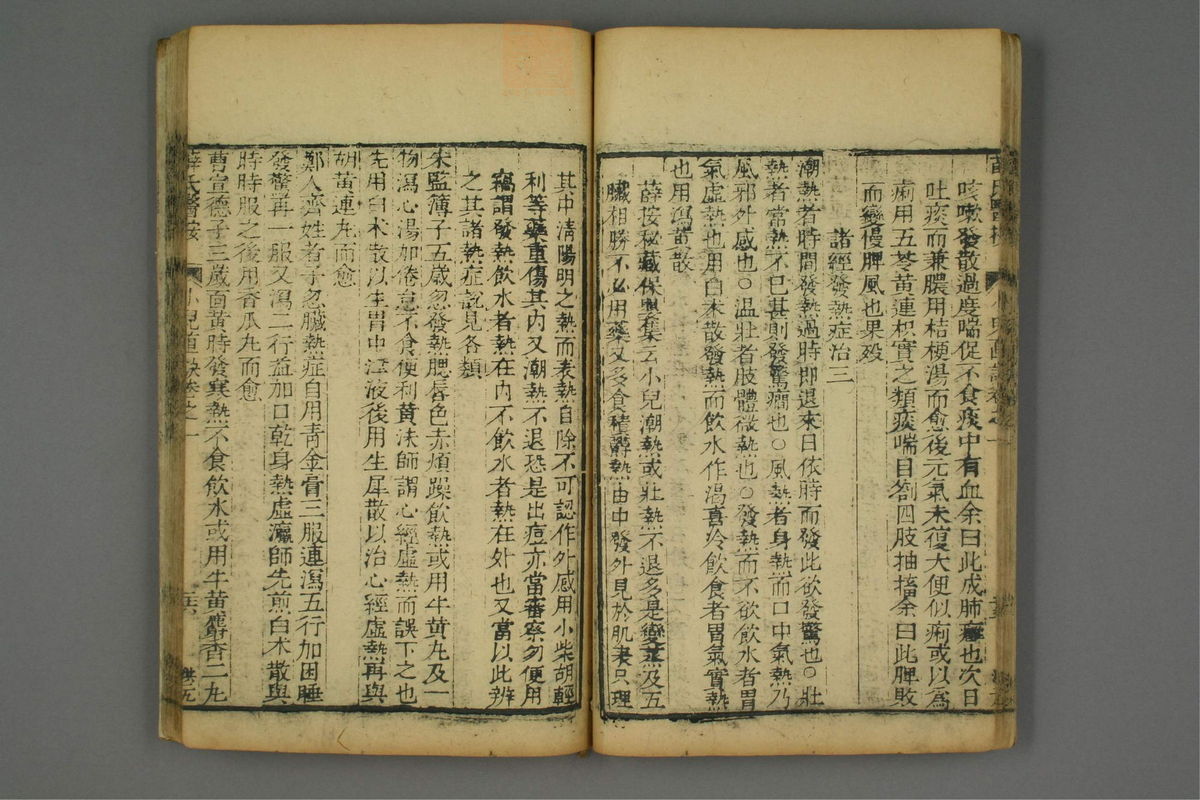 咳嗽發散過度喘促不食痰中有血余曰此成肺癰也次日
吐痰而兼膿用桔梗湯而愈後元氣未復大便似痢或以爲
痢用五苓黃連枳實之類痰喘目劄四肢抽搐余曰此脾敗
而變慢脾風也果歿
諸經發熱症治三
潮熱者時間發熱過時即退來日依時而發此欲發驚也○壯
熱者常熱不已甚則發驚癎也○風熱者身熱而口中氣熱乃
風邪外感也○温壯者肢體微熱也○發熱而不欲飲水者胃
氣虛熱也用白朮散發熱而飲水作渴喜冷飲食者胃氣實熱
也用瀉黃散
薛按秘藏保嬰集云小兒潮熱或壯熱不退多是變蒸及五
臟相勝不必用藥又多食積鬱熱由中發外見於肌表只理
其中清陽明之熱而表熱自除不可認作外感用小柴胡輕
利等藥重傷其内又潮熱不退恐是出痘亦當審察勿便用
竊謂發熱飲水者熱在内不飲水者熱在外也又當以此辨
之其諸熱症說見各類
朱監簿子五歲忽發熱腮唇色赤煩躁飲熱或用牛黃丸及一
物瀉心湯加倦怠不食便利黃沫師謂心經虛熱而誤下之也
先用白朮散以生胃中津液後用生犀散以治心經虛熱再與
胡黃連丸而愈
鄭人齊姓者子忽臟熱症自用青金膏三服連瀉五行加困睡
發驚再一服又瀉二行益加口乾身熱虛瀛師先煎白朮散與
時時服之後用香瓜丸而愈
曹宣德子三歲面黃時發寒熱不食飲水或用牛黃麝香二丸
薛氏醫按 小兒直訣卷之一